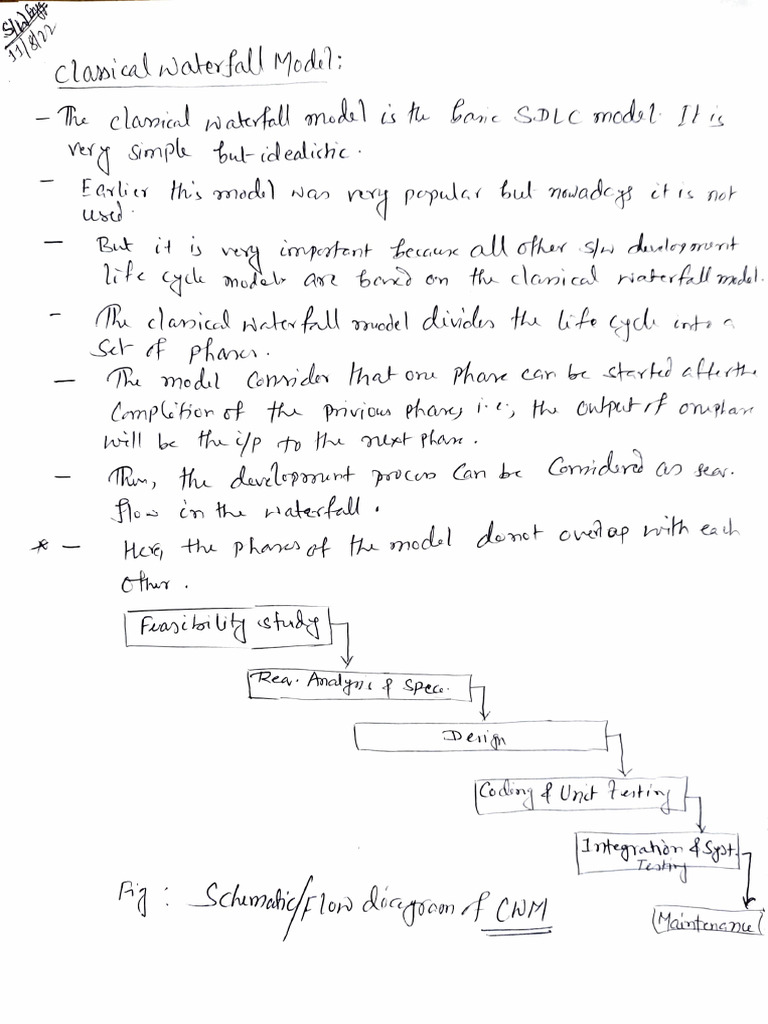 S/W Engg
11/8/22
Classical Waterfall Model:
- The classical waterfall model is the basic SDLC model. It is
very simple but idealistic.
- Earlier this model was very popular but nowadays it is not
used.
- But it is very important because all other s/w development
life cycle models are based on the classical waterfall model.
- The classical waterfall model divides the life cycle into a
set of phases.
- The model consider that one phase can be started after the
complition of the privious phase, i.e., the output of one phase
will be the i/p to the next phase.
- Thus, the development process can be considered as seq.
flow in the waterfall.
* - Here, the phases of the model do not overlap with each
other.
Feasibility study
Req. Analysis & Spec.
Design
Coding & Unit Testing
Integration & Syst.
Testing
Fig: Schematic/Flow diagram of CWM
Maintenance